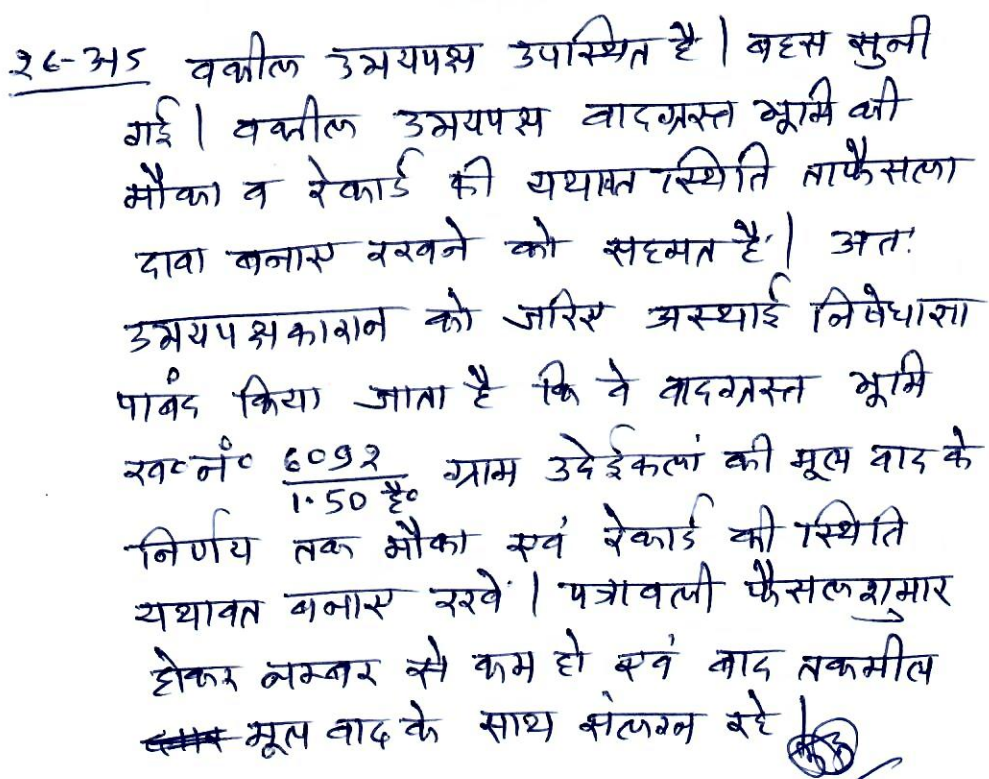 26-3-15 वकील उभयपक्ष उपस्थित है | बहस सुनी
गई | वकील उभयपक्ष वादग्रस्त भूमि की
मौका व रेकार्ड की यथावत स्थिति ताफैसला
दावा बनाए रखने को सहमत हैं | अतः
उभयपक्षकारान को जरिए अस्थाई निषेधाज्ञा
पाबंद किया जाता है कि वे वादग्रस्त भूमि
ख० नं० 6092/1.50 है० ग्राम उदेईकलां की मूल वाद के
निर्णय तक मौका एवं रेकार्ड की स्थिति
यथावत बनाए रखें | पत्रावली फैसलशुमार
होकर नम्बर से कम हो एवं बाद तकमील
मूल वाद के साथ संलग्न रहे |